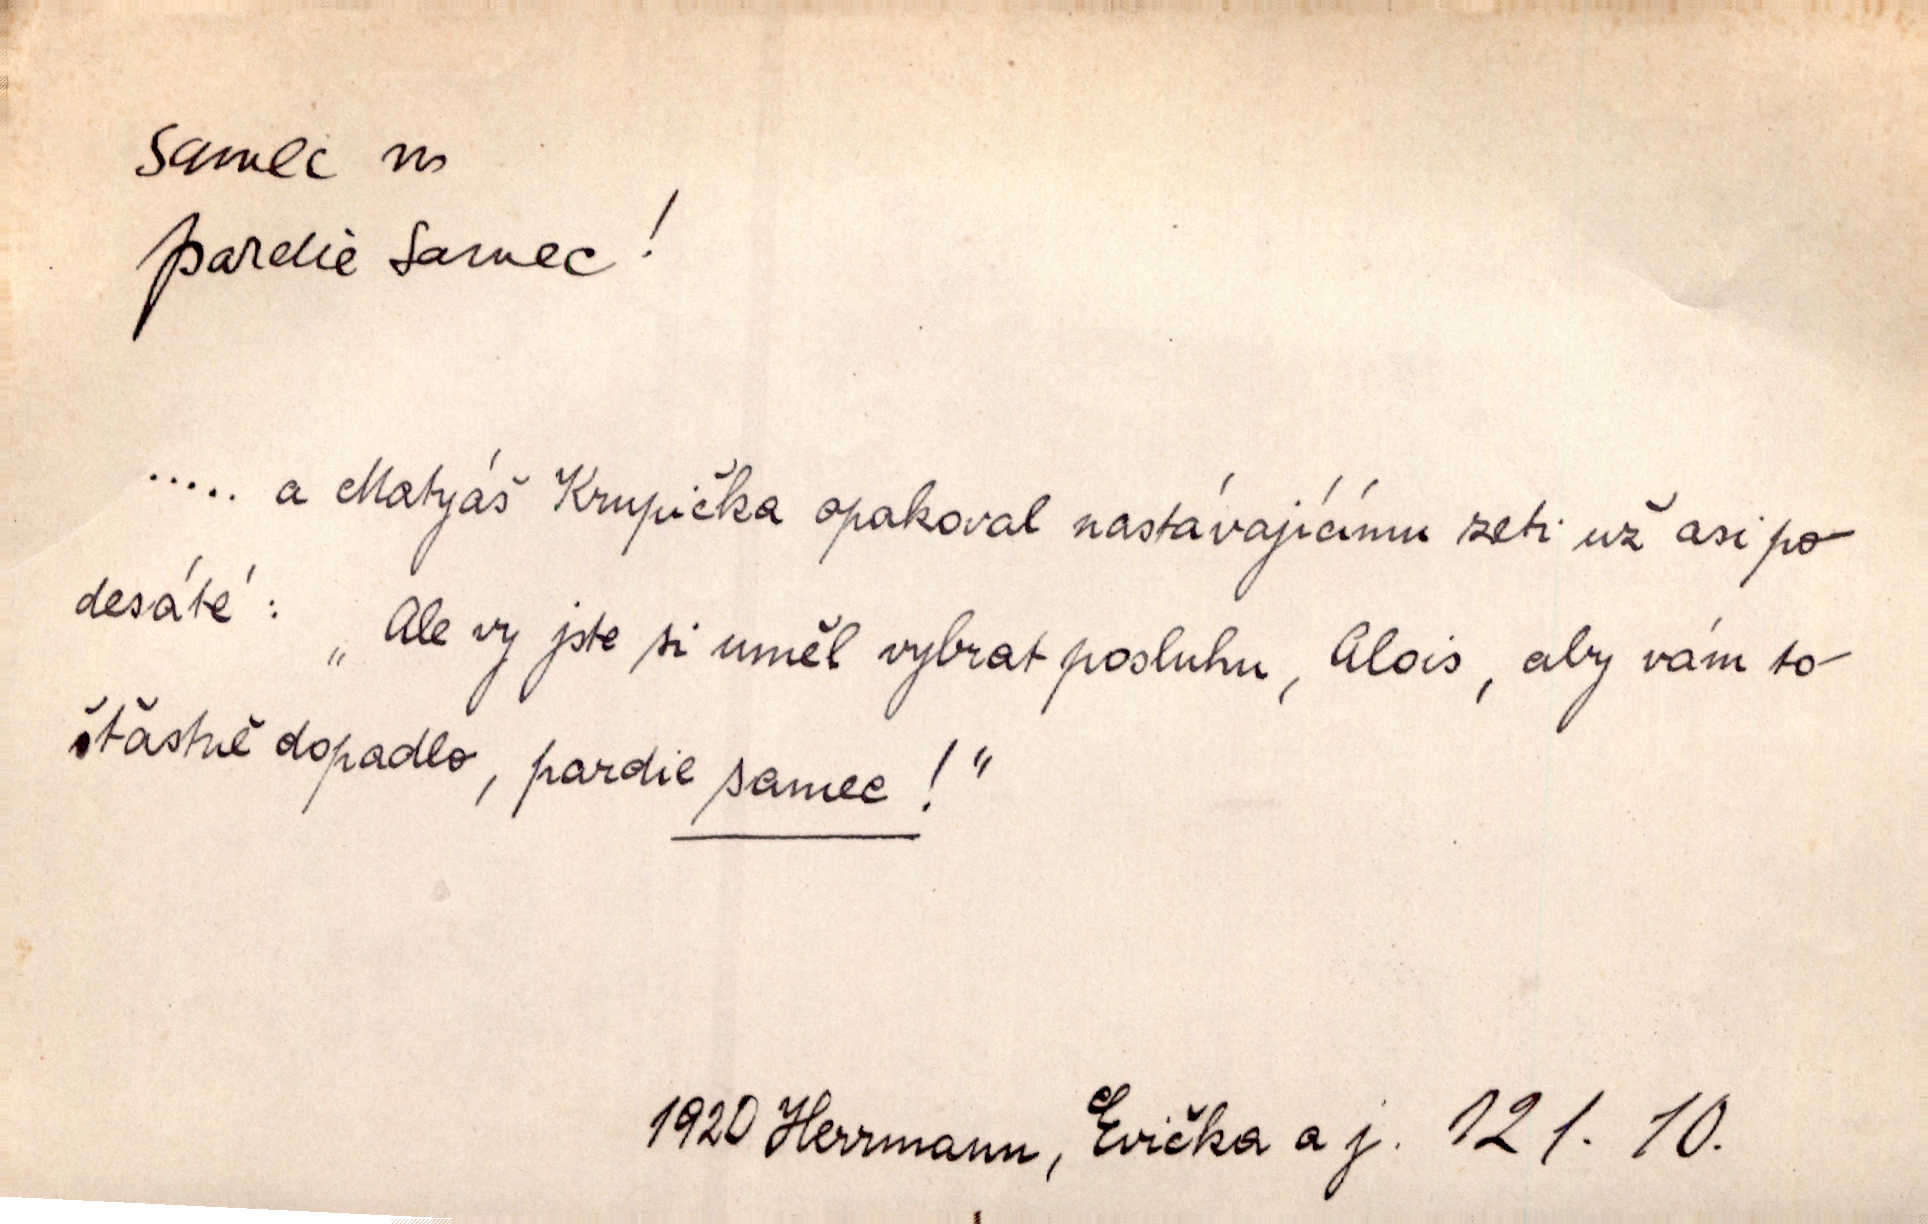 samec m
pardie samec!
..... a Matyáš Krupička opakoval nastávajícímu zeti už asi po-
desáté: „Ale vy jste si uměl vybrat posluhu, Alois, aby vám to
šťastně dopadlo, pardie samec!"
1920 Herrmann, Evička a j. 121. 10.